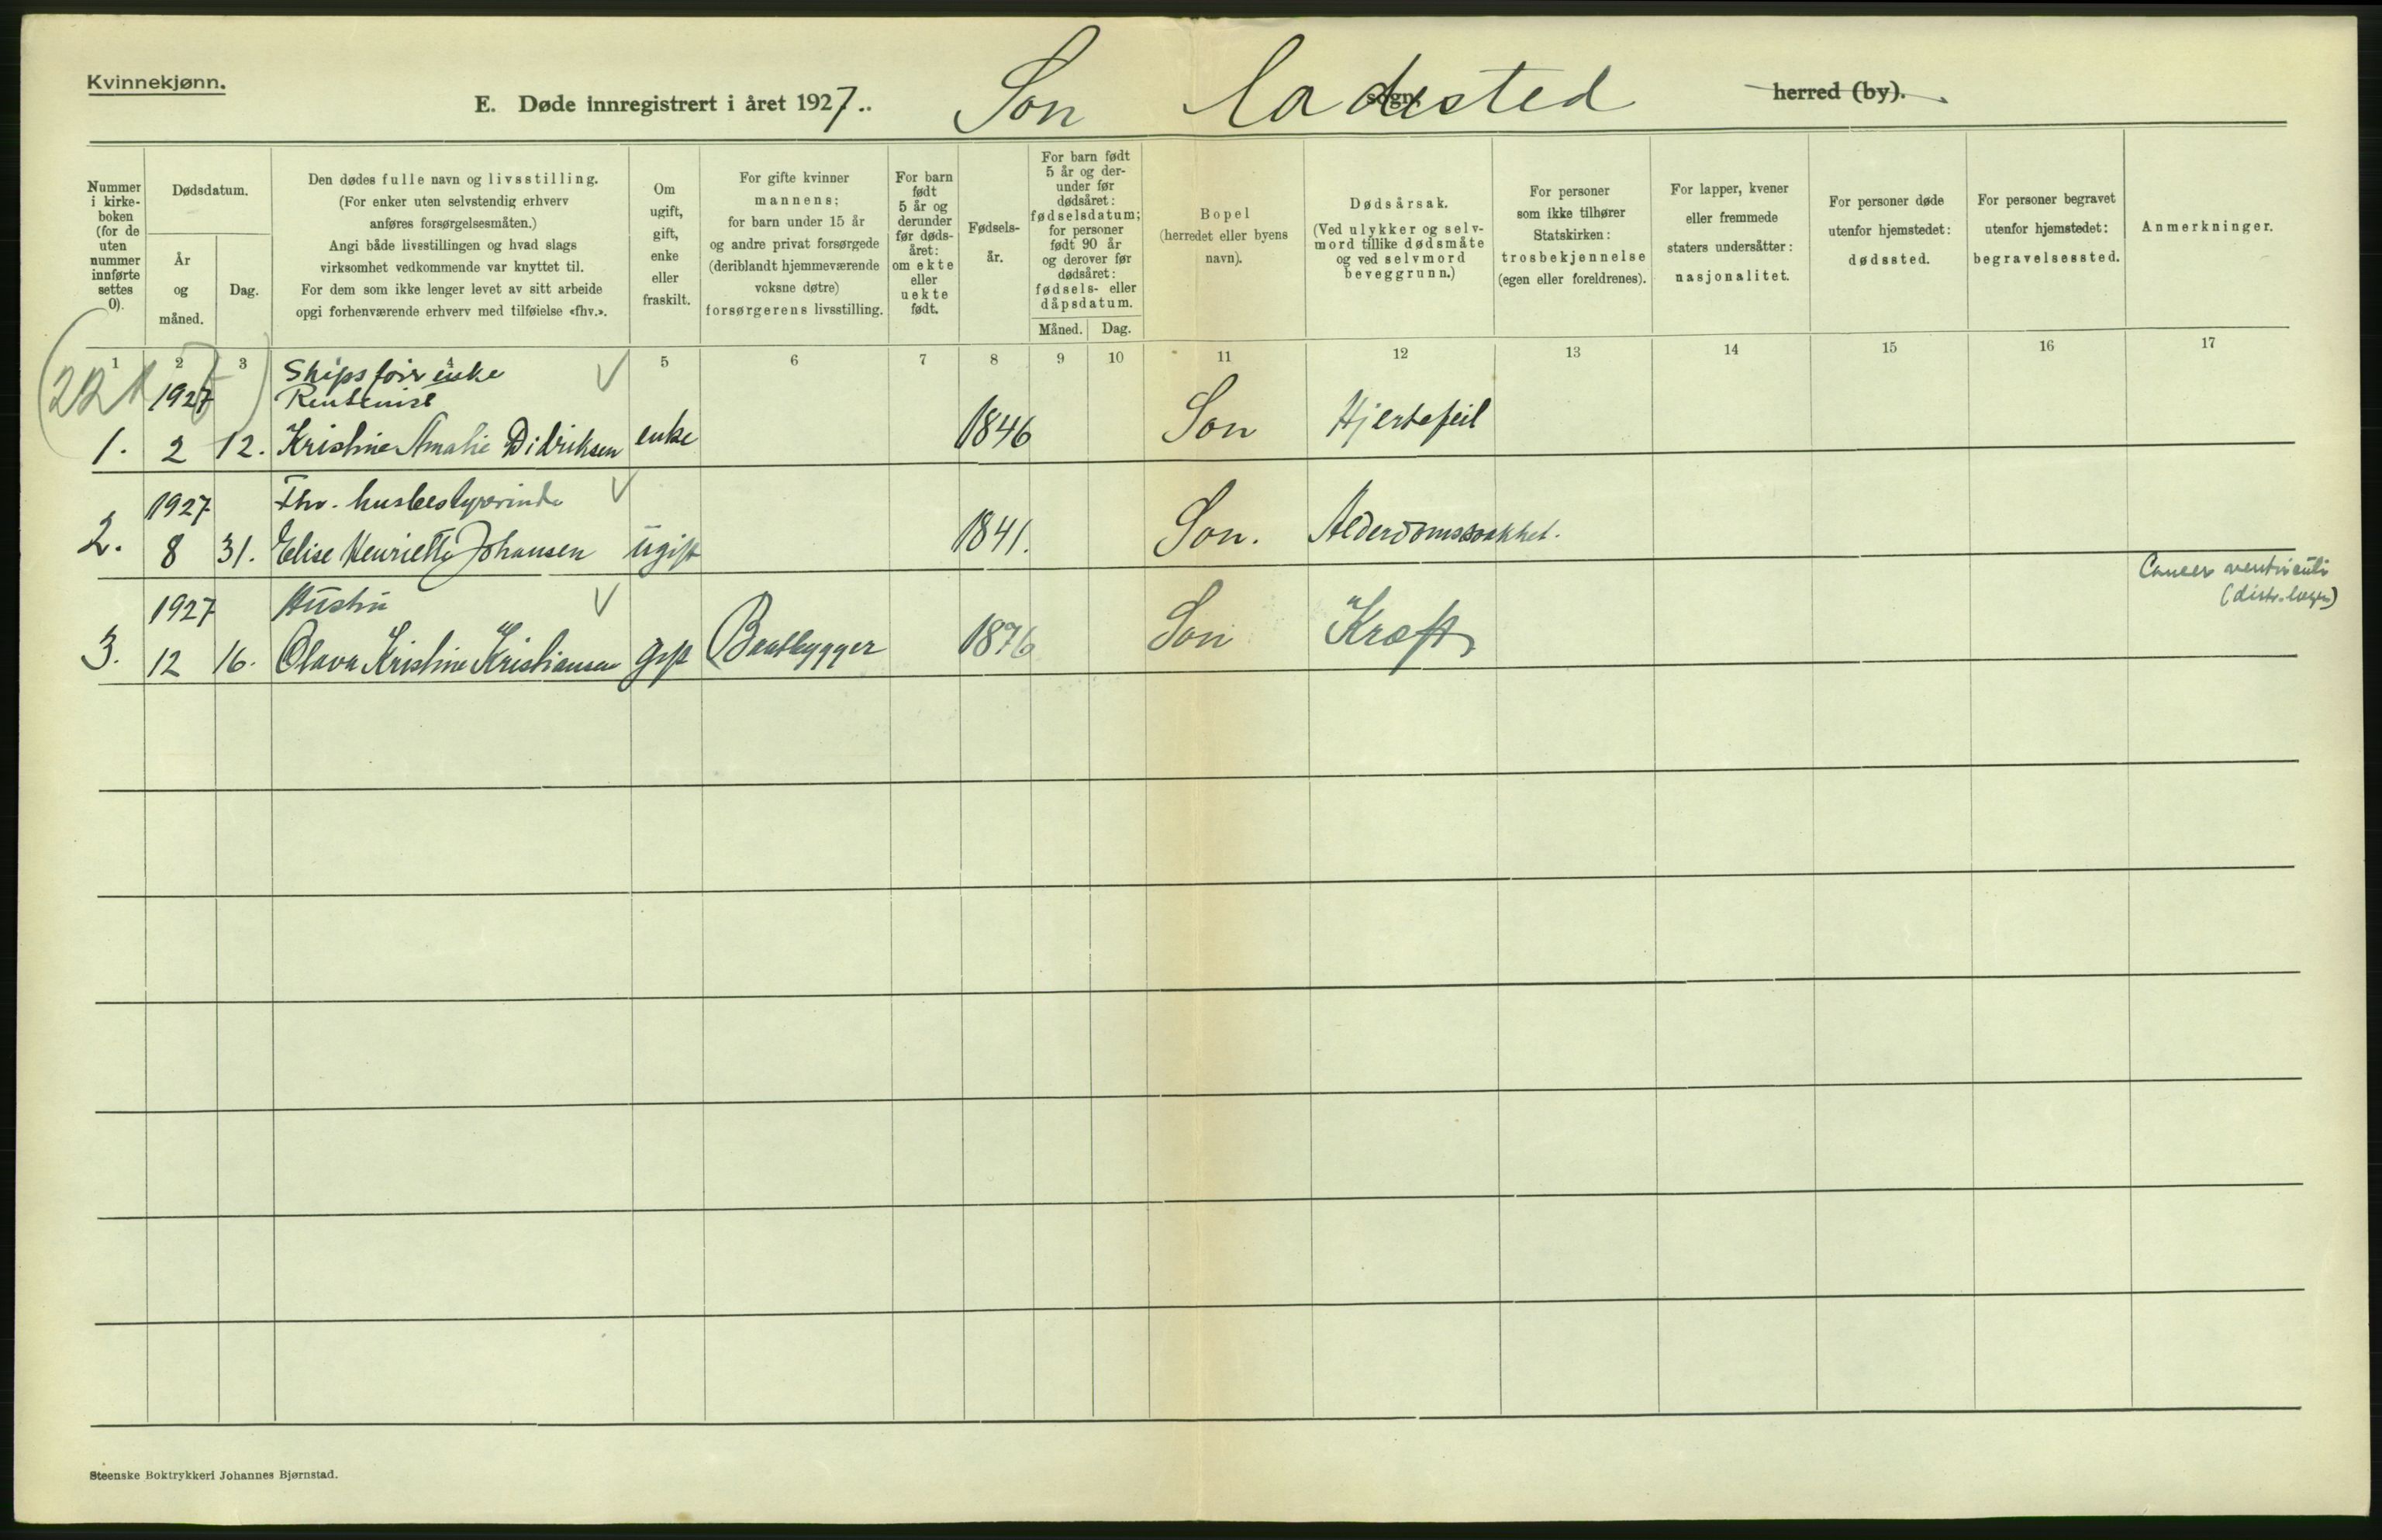 Kvinnekjønn.
E. Døde innregistrert i året 1927.. Son Ladested sogn. herred (by).
Nummer
i kirke-
boken
(for de
uten
nummer
innførte
settes
0).
Dødsdatum.
År
og
måned.
Dag.
Den dødes fulle navn og livsstilling.
(For enker uten selvstendig erhverv
anføres forsørgelsesmåten.)
Angi både livsstillingen og hvad slags
virksomhet vedkommende var knyttet til.
For dem som ikke lenger levet av sitt arbeide
opgi forhenværende erhverv med tilføielse «fhv.».
Om
ugift,
gift,
enke
eller
fraskilt.
For gifte kvinner
mannens;
for barn under 15 år
og andre privat forsørgede
(deriblandt hjemmeværende
voksne døtre)
forsørgerens livsstilling.
For barn
født
5 år og
derunder
før døds-
året:
om ekte
eller
uekte
født.
Fødsels-
år.
For barn født
5 år og der-
under før
dødsåret:
fødselsdatum;
for personer
født 90 år
og derover før
dødsåret:
fødsels- eller
dåpsdatum.
Måned. Dag.
Bopel
(herredet eller byens
navn).
Dødsårsak.
(Ved ulykker og selv-
mord tillike dødsmåte
og ved selvmord
beveggrunn.)
For personer
som ikke tilhører
Statskirken:
trosbekjennelse
(egen eller foreldrenes).
For lapper, kvener
eller fremmede
staters undersåtter:
nasjonalitet.
For personer døde
utenfor hjemstedet:
dødssted.
For personer begravet
utenfor hjemstedet:
begravelsessted.
Anmerkninger.
1 2 3 4 5 6 7 8 9 10 11 12 13 14 15 16 17
enke
1927
1. 2 12. Kristine Amalie Didriksen enke 1846 Son Hjertefeil
1927 Fhv. husbestyrerinde
2. 8 31. Elise Henriette Johansen ugift 1841. Son. Alderdomssvakhet.
1927 Hustru Cancer ventriculi
3. 12 16. Olava Kristine Kristiansen gift Baatbygger 1876 Son Kræft
Steenske Boktrykkeri Johannes Bjørnstad.